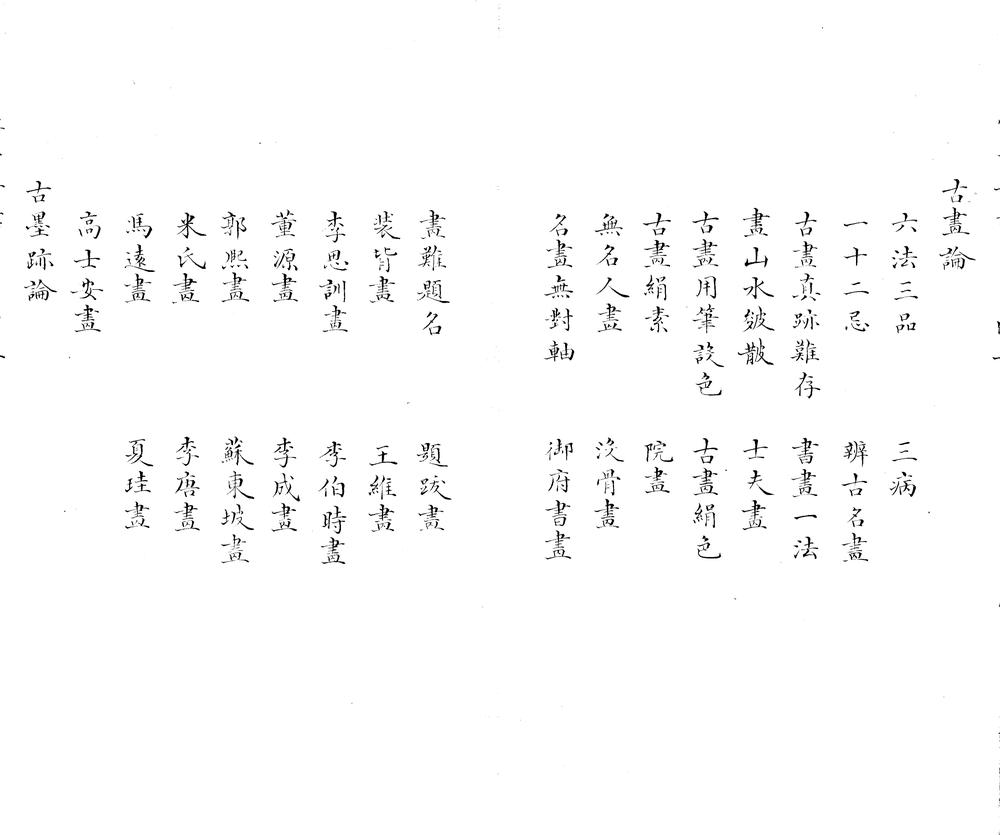 古畫論
六法三品　三病
一十二忌　辨古名畫
古畫真跡難存　書畫一法
畫山水皴散　士夫畫
古畫用筆設色　古畫絹色
古畫絹素　院畫
無名人畫　沒骨畫
名畫無對軸　御府書畫
畫難題名　題跋畫
裝背畫　王維畫
李思訓畫　李伯時畫
董源畫　李成畫
郭熙畫　蘇東坡畫
米氏畫　李唐畫
馬遠畫　夏珪畫
高士安畫
古墨跡論